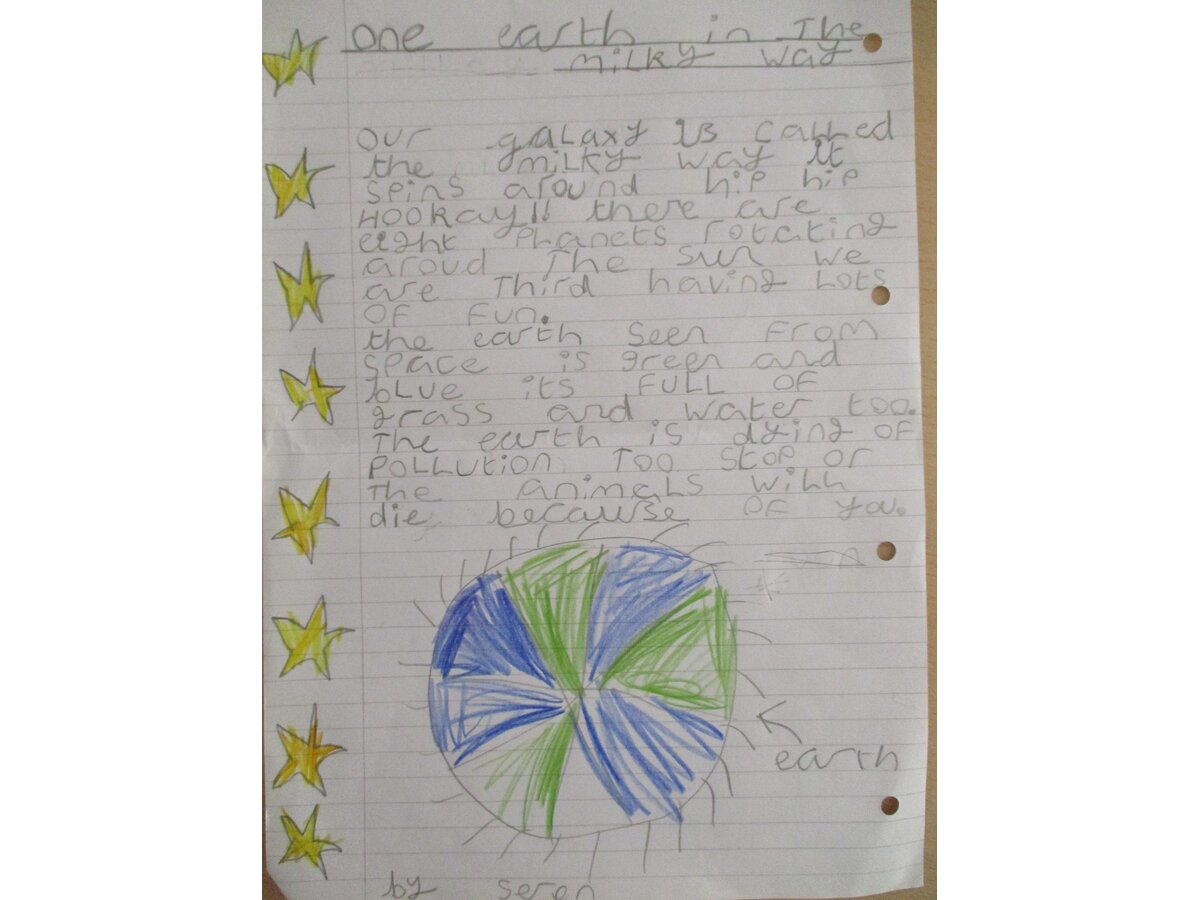 One earth in The
milky way
Our galaxy is called
the milky way it
spins around hip hip
HOORay!! there are
eight planets rotating
aroud The sun we
are Third having Lots
OF Fun.
the earth seen From
space is green and
blue its FULL OF
grass and water too.
The earth is dying OF
POLLUtion Too stop or
The animals will
die because OF you.
earth
by seren